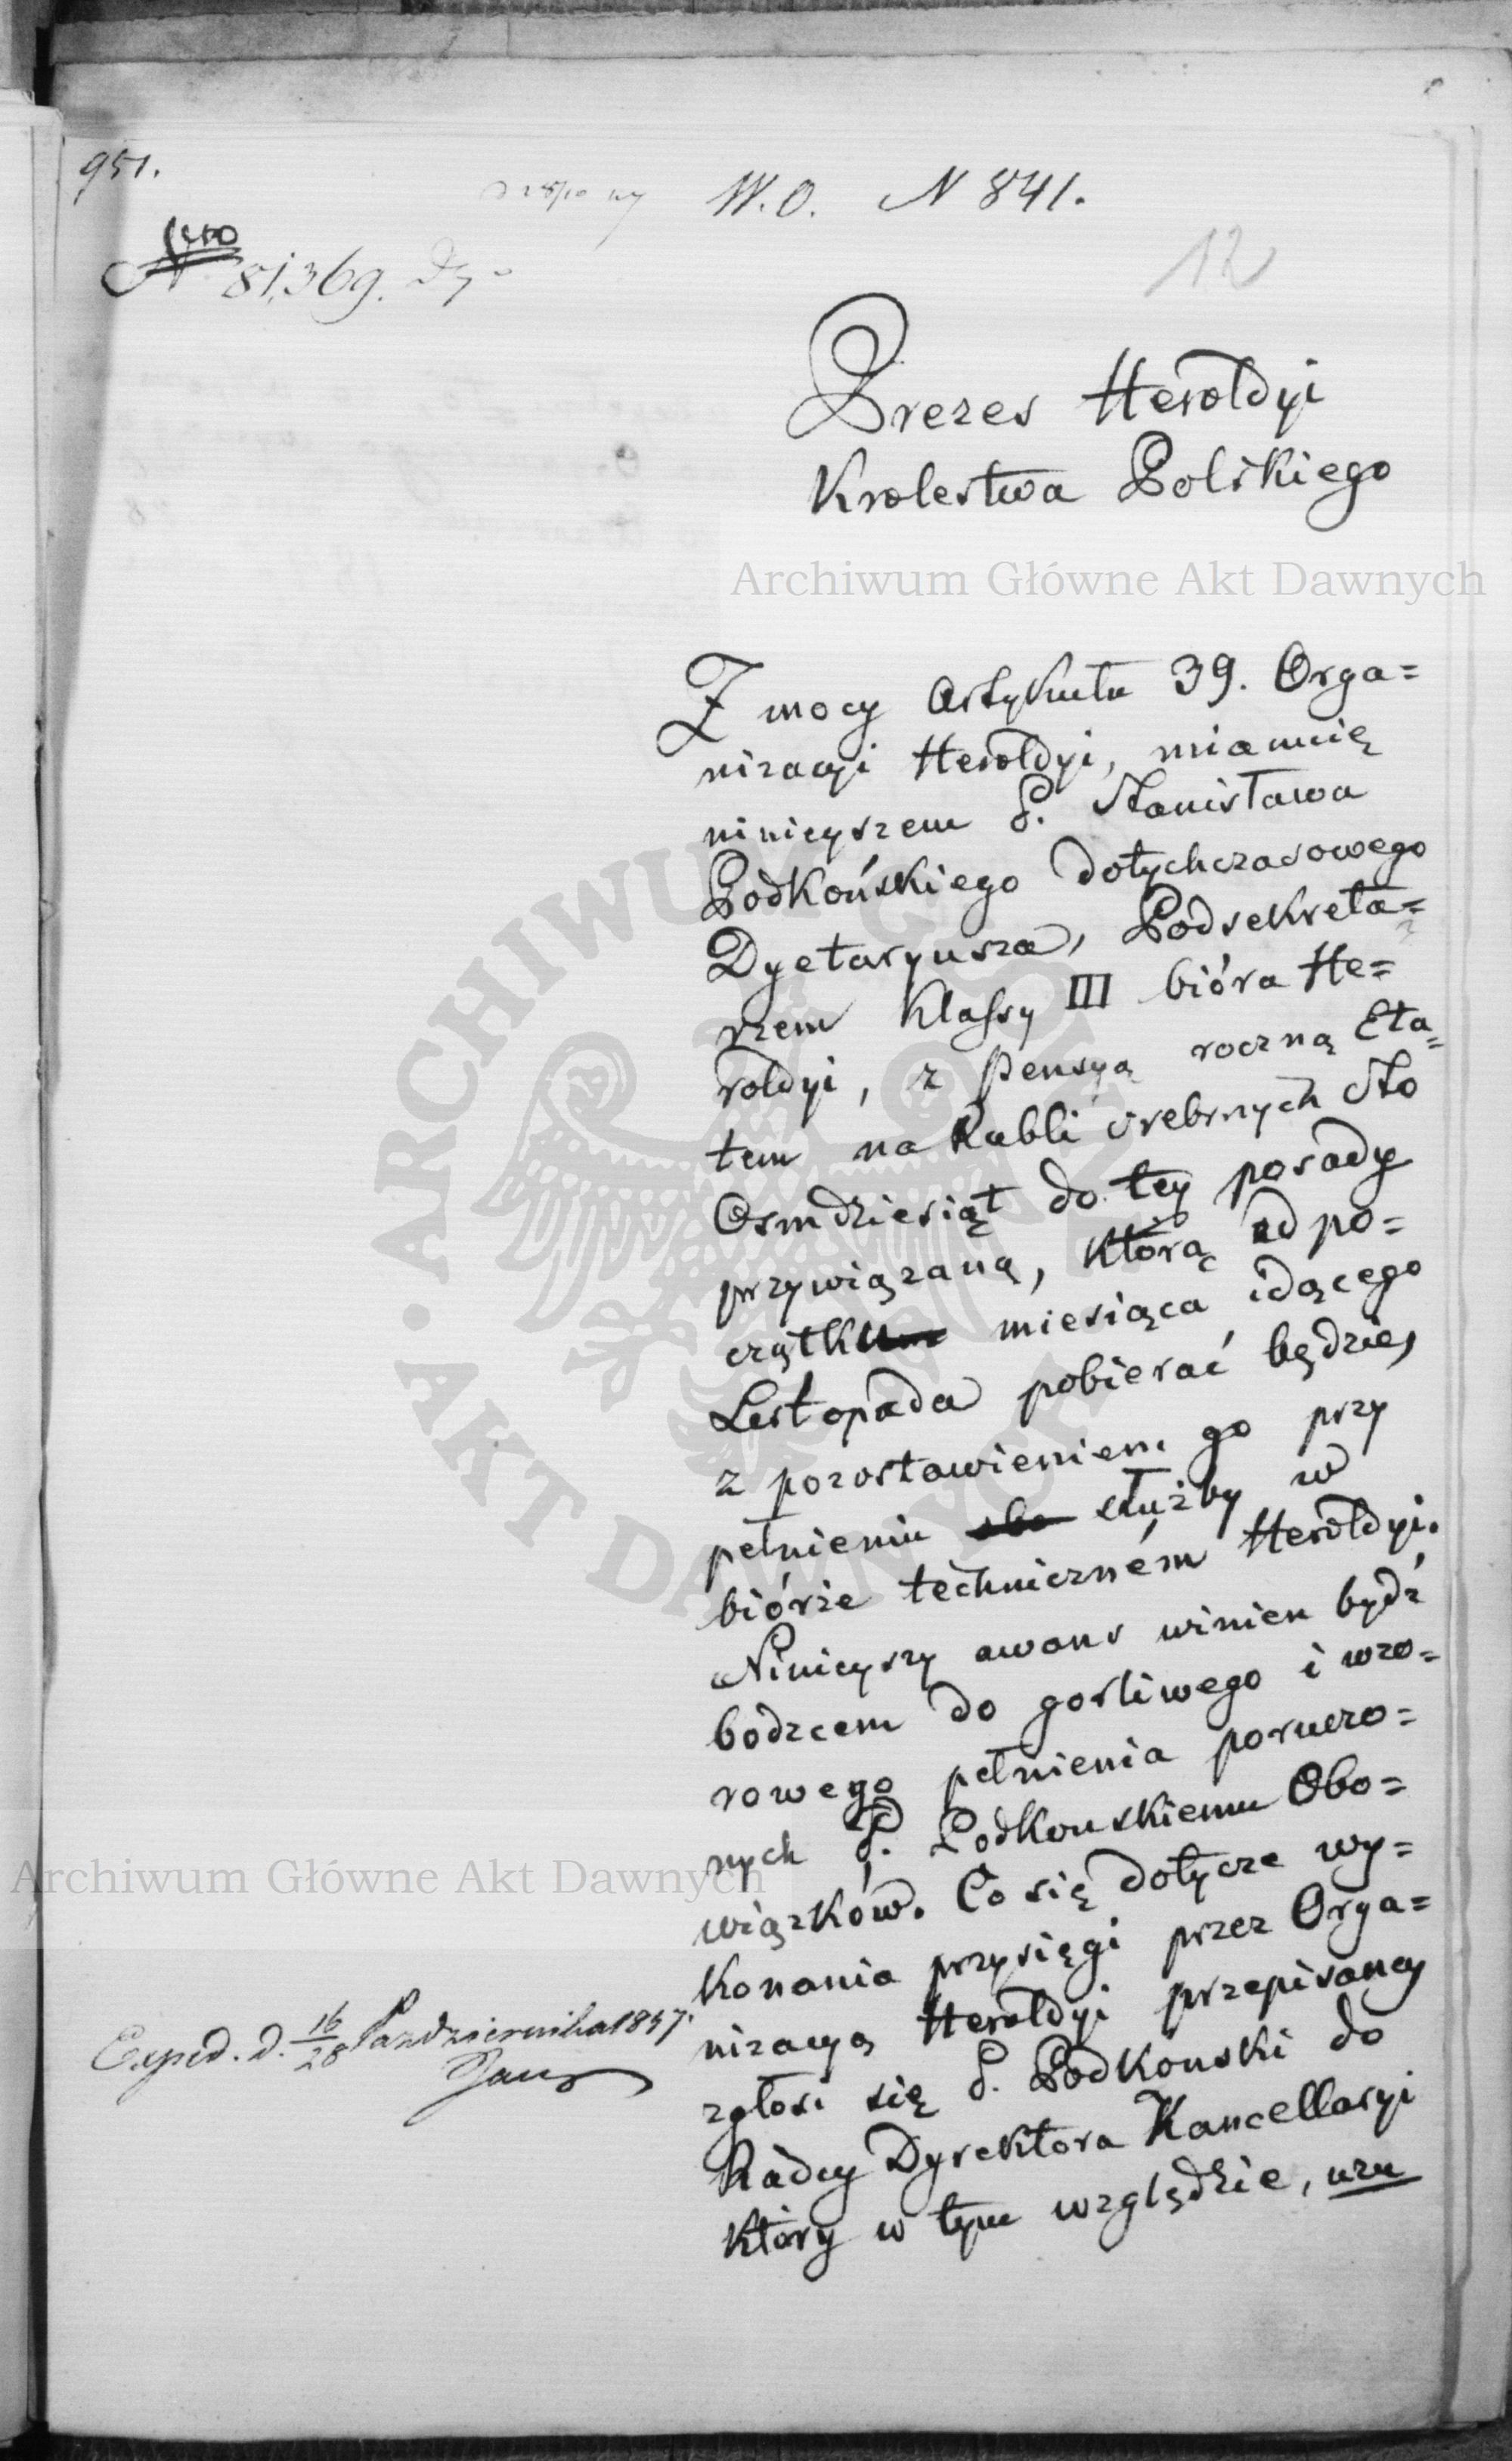 951.
W.O. N 841.
N 81,369.
12
Prezes Herołdyi
Krolestwa Polskiego
Archiwum Główne Akt Dawnych
Z mocy Artykułu 39. Orga=
nizacyi Herołdyi, mianuię
ninieyszem P. Stanisława
Podkońskiego dotychczasowego
Dyetaryusza, Podsekreta=
rzem Klassy III bióra He=
roldyi, z pensyą roczną Eta=
tem na Rubli srebrnych Sto
Osmdziesiąt do tey posady
przywiązaną, którą od po=
czątku miesiąca idącego
Listopada pobierać będzie,
z pozostawieniem go przy
pełnieniu służby w
biórze techniczném Herołdyi.
Ninieyszy awans winien bydź
bodzcem do gorliwego i wzo=
rowego pełnienia poruczo=
nych P. Podkonskiemu Obo=
wiązków. Co się dotycze wy=
konania przysięgi przez Orga=
nizacyą Herołdyi przepisaney
zgłosi się P. Podkonski do
Radcy Dyrektora Kancellaryi
który w tym względzie, uzu
Archiwum Główne Akt Dawnych
Exped. d. 16/28 Pazdziernika 1857.
ARCHIWUM GŁÓWNE AKT DAWNYCH